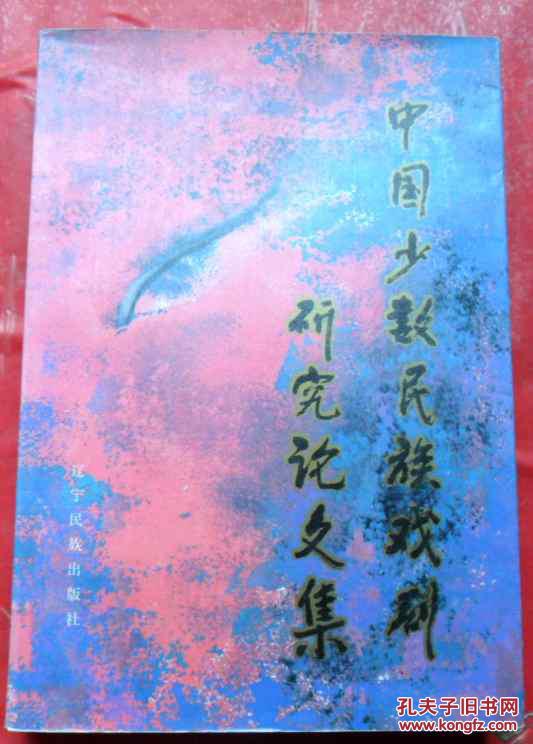 中国少数民族戏剧
研究论文集
辽宁民族出版社
孔夫子旧书网
www.kongfz.com